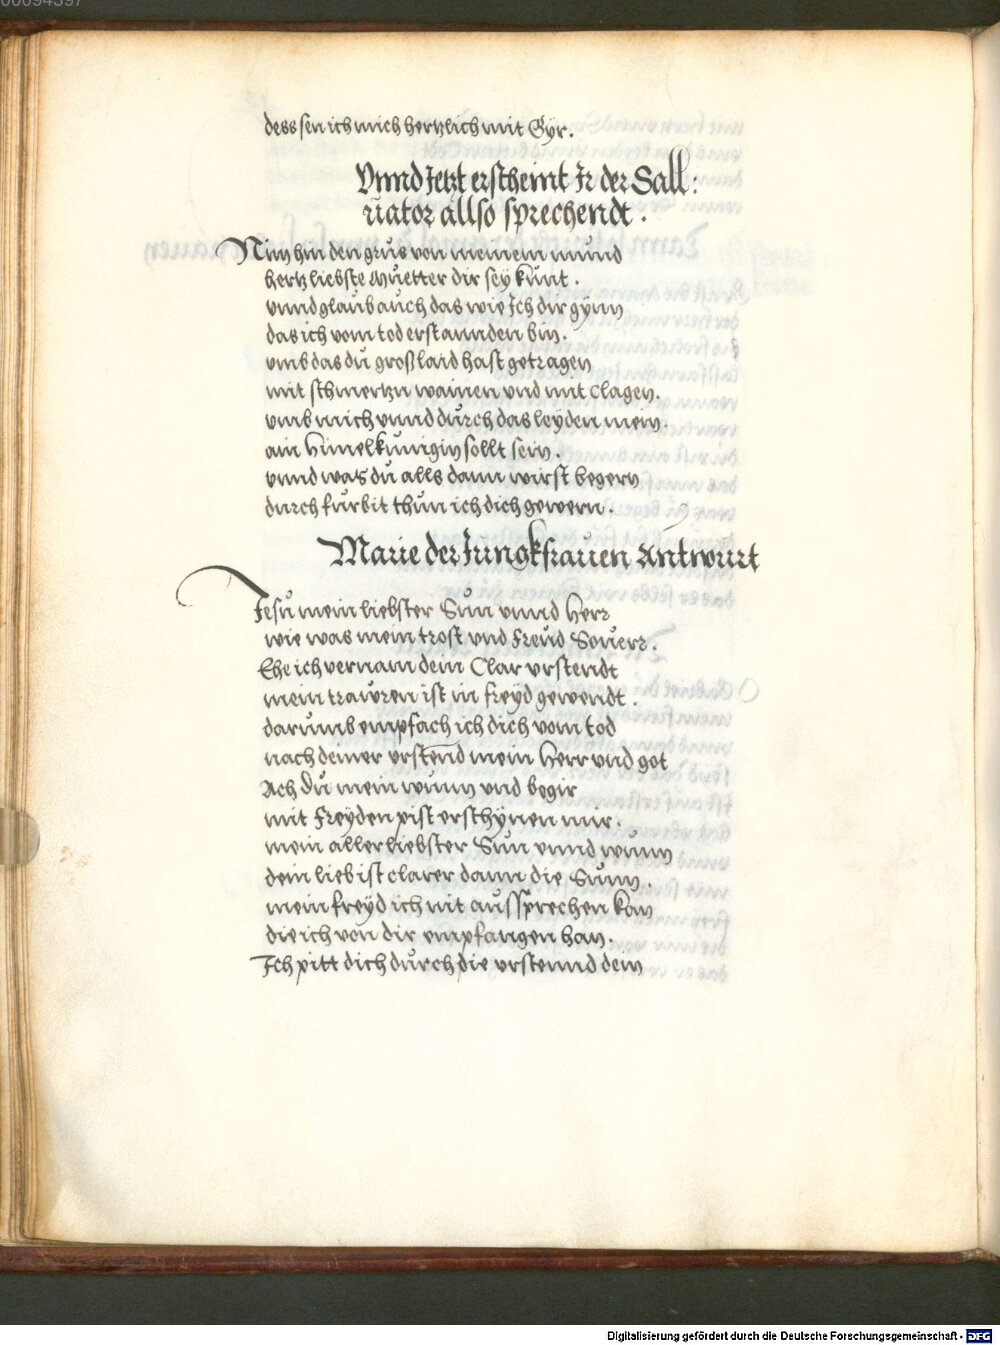 dess sen ich mich hertzlich mit Gyr.
Vnnd Jetzt erscheint Jr der Sall:
uator allso sprechendt.
Nim hin den grus von meinem mund
hertzliebste Muetter dir sey kunt.
vnnd glaub auch das wie Ich dir gynn
das ich vom tod erstannden bin.
vmb das du groß laid hast getragen
mit schmertzn wainen vnd mit Clagen.
vmb mich vnnd durch das leyden mein.
ain himelkunigin sollt sein.
vnnd was du alls dann wirst begern
durch furbit thun ich dich gewern.
Marie der Jungkfrauen Antwurt
Jesu mein liebster Sun vnnd Herr
wie was mein trost vnd Freud So verr.
Ehe ich vernam dein Clar vrstendt
mein trauren ist in freyd gewendt.
darumb empfach ich dich vom tod
nach deiner vrstend mein Herr vnd got
Ach Du mein wunn vnd begir
mit Freyden pist erschynen mir.
mein allerliebster Sun vnnd wunn
dein lieb ist clarer dann die Sunn.
mein freyd ich nit aussprechen kan
die ich von dir empfangen han.
Ich pitt dich durch die vrstennd dein
Digitalisierung gefördert durch die Deutsche Forschungsgemeinschaft - DFG